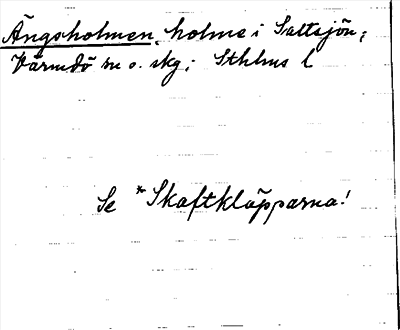 Ängsholmen, holme i Saltsjön;
Värmdö sn o. skg; Sthlms l
Se * Skaftkläpparna!